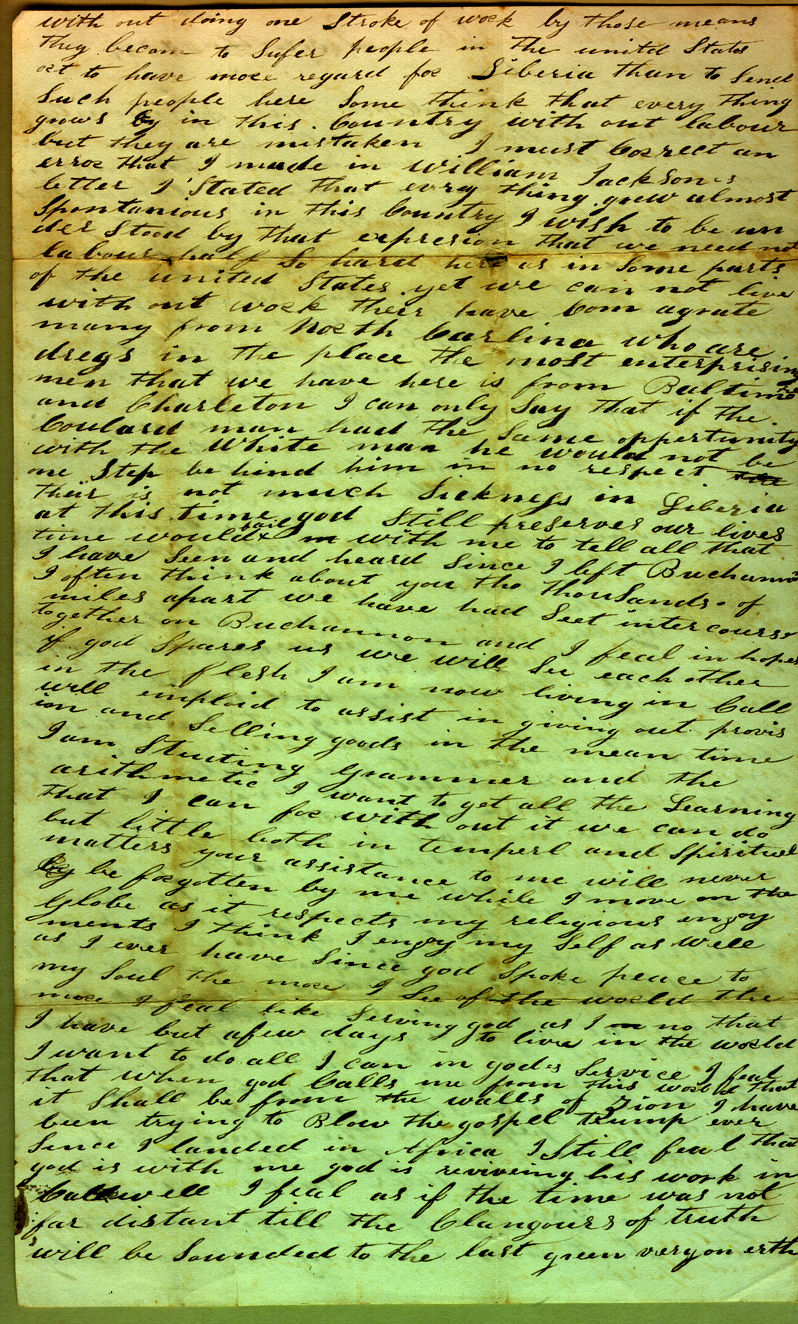 with out doing one Stroke of work by those means
they becom to Sufer people in the unitd States
ort to have more regard for Liberia than to Send
Such people here Some think that every thing
grows in this Country with out labour
but they are mistaken I must Correct an
error that I made in William Jacksons
letter I Stated that evry thing grew almost
Spontanious in this Country I wish to be un
der Stood by that expresion that we need not
labour half So hard here as in Some parts
of the united States yet we can not live
with out work their have Com a grate
many from North Carlina who are
dregs in the place the most enterprising
men that we have here is from Baltimore
and Charleton I can only Say that if the
Coulard man had the Same opportunity
with the White man he would not be
one Step be hind him in no respect
their is not much Sickness in Liberia
at this time god Still preserves our lives
time would fail with me to tell all that
I have Seen and heard Since I left Buchannon
I often think about you tho thouSands of
miles apart we have had Seet intercourse
together on Buchannon and I feal in hopes
if god Spares us we will See each other
in the flesh I am now living in Call
will emploid to assist in giving out provis
ion and Selling goods in the mean time
I am Studing Grammer and the
arithmetic I want to get all the Learning
that I can for with out it we can do
but little both in temperl and Spiritual
matters your assistance to me will never
be forgotten by me while I move on the
Globe as it respects my religious enjoy
ments I think I enjoy my Self as well
as I ever have Since god Spoke peace to
my Soul the more I See of the world the
more I feal like Serving god as I no that
I have but a few days to live in the world
I want to do all I can in gods Service I feal
that when god Calls me from this world that
it Shall be from the walls of Zion I have
been trying to Blow the gospel trump ever
Since I landed in Africa I Still feal that
god is with me god is reviveing his work in
Caldwell I feal as if the time was not
far distant till the Clangours of truth
will be Sounded to the last green very on erth